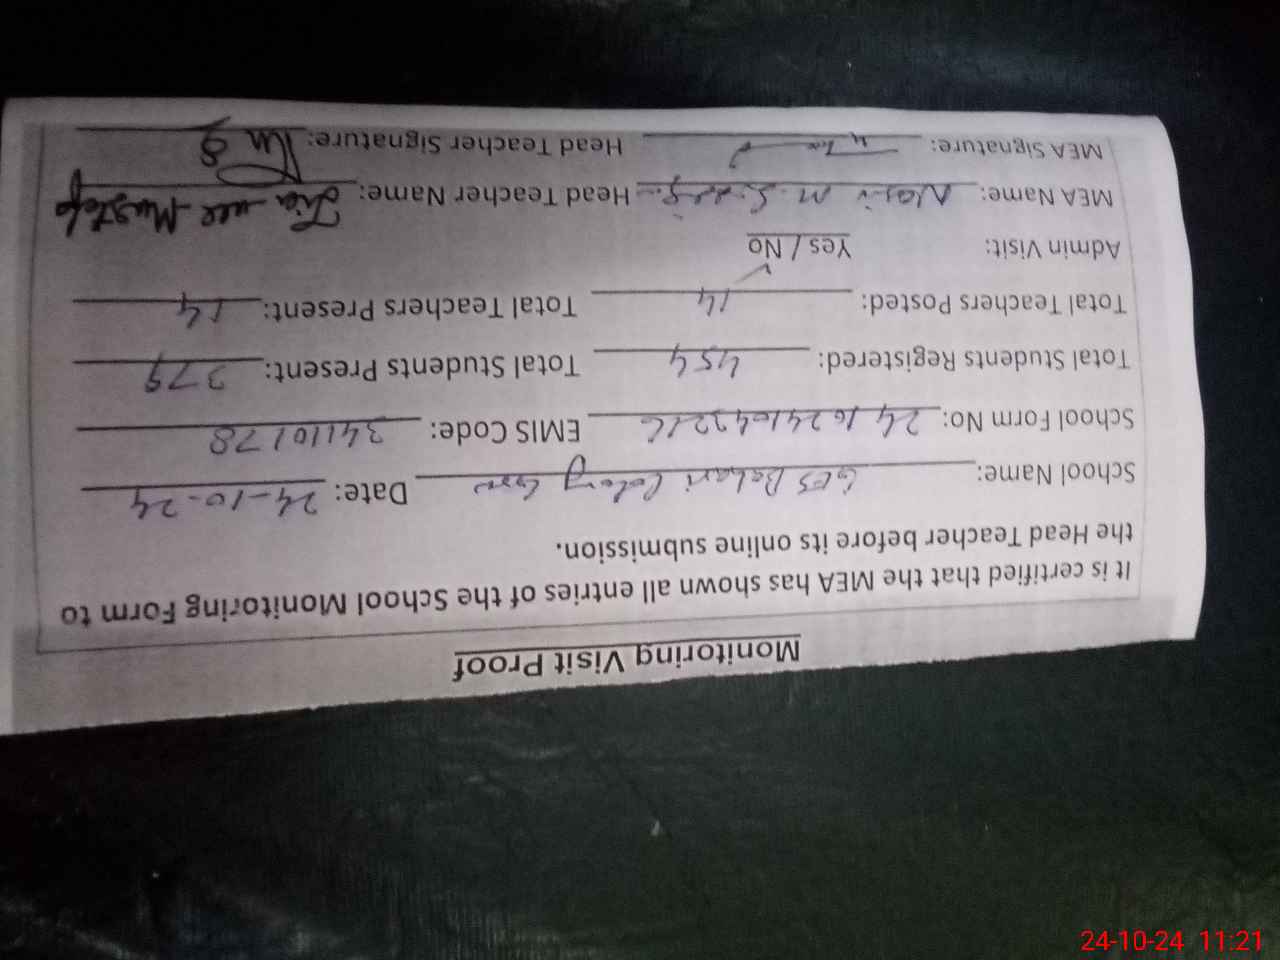 Monitoring Visit Proof
It is certified that the MEA has shown all entries of the School Monitoring Form to
the Head Teacher before its online submission.
School Name: GES Bahari Colony Date: 24-10-24
School Form No: EMIS Code: 34110178
Total Students Registered: 454 Total Students Present: 379
Total Teachers Posted: 14 Total Teachers Present: 14
Admin Visit: Yes / No
MEA Name: Nasir M. Head Teacher Name: Zia-ul-Mustafa
MEA Signature: Head Teacher Signature:
24-10-24 11:21